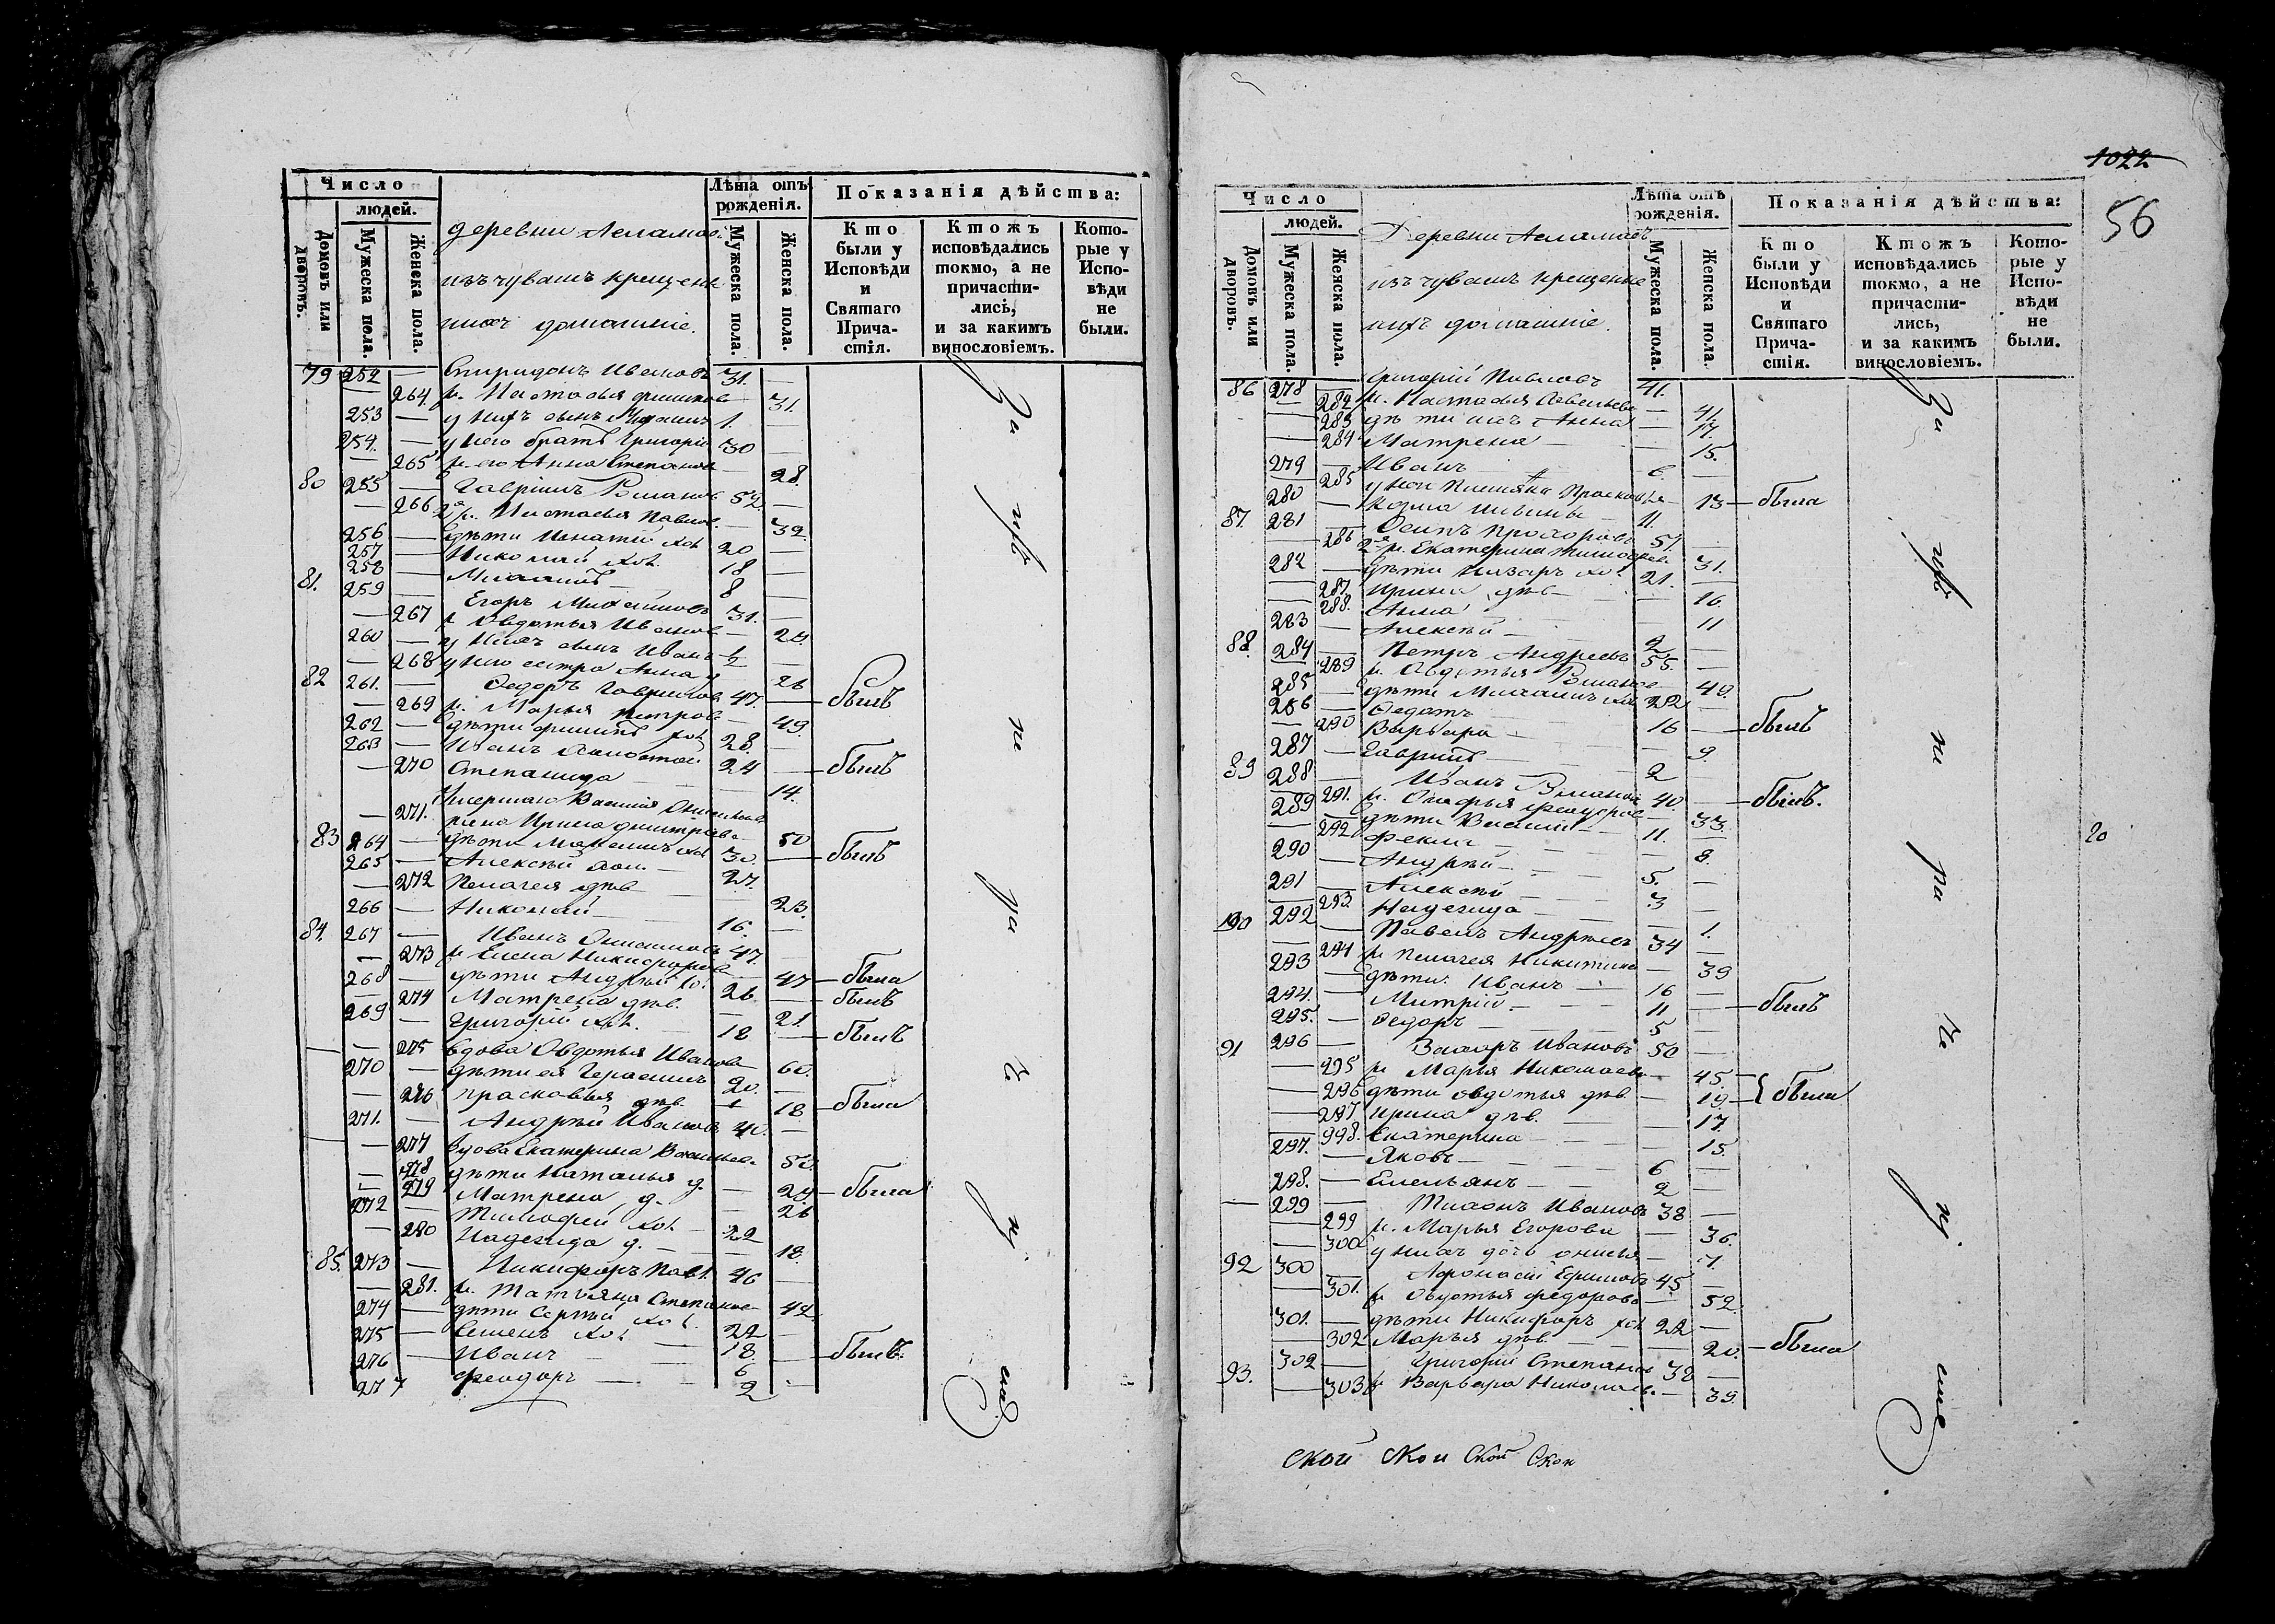 Число
людей.
Домовъ или дворовъ.
Мужеска пола.
Женска пола.
деревни Асламас
изъ чувашъ крещен
ныхъ домашніе.
Лѣта отъ рожденія.
Мужеска пола.
Женска пола.
Показанія дѣйства:
Кто были у Исповѣди и Святаго Причастія.
Ктожъ исповѣдались токмо, а не причастились, и за какимъ винословіемъ.
Которые у Исповѣди не были.
79 252 — Спиридонъ Ивановъ 31. —
— 264 ж. Настасья — 31.
253 — у нихъ сынъ 1. —
254. — у него братъ Григорій 30 —
— 265 ж. его Анна Степанова — 28.
80 255 — Гавріилъ Романовъ 52. —
— 266 2я ж. Настасья Павлов. — 39.
256 — дѣти Игнатій хол. 20 —
257 — Николай хол. 18 —
258 — 8 —
81. 259 — Егоръ Михайловъ 31. —
— 267 ж Овдотья Иванов — 24.
260 — у нихъ сынъ Иванъ 1/2 —
— 268 у него сестра Анна д. 26
82 261. — Ѳедоръ Гаврилов 47. — былъ
— 269 ж. Марья Петров — 49.
262 — дѣти Филипъ хол 28. —
263 — Иванъ Холостой 24 — былъ
— 270 Степанида — 14.
Умершаго Василія
— 271. жена Ирина Дмитріева — 50
83 264 — дѣти хол 30. — былъ
265 — Алексѣй хол. — 27.
— 272 Пелагея дѣв — 23.
266 — Николай — 16. —
84. 267 — Иванъ 47. —
— 273 ж Елена Никифорова — 47 — была
268 — дѣти Андрей хол 26 — былъ
— 274 Матрена дѣв. — 21.
269 — Григорій хол. 18 — былъ
— 275 вдова Овдотья Иванова 60.
270 — дѣти ея Герасимъ 20. —
— 276 Прасковья дѣв. 18 — была
271. — Андрей Ивановъ 40. —
— 277 вдова Екатерина Васильева 50.
— 278 дѣти Наталья д. — 24 — была
— 279 Матрена д. — 26
272 — Тимофей хол — 22
— 280 Надежда д. — 18.
85. 273 — Никифоръ Павл. 46 —
— 281. ж. Татьяна Степанов 42.
274 — дѣти Сергѣй хол. 22 —
275 — Семенъ хол 18 — былъ.
276 — Иванъ 6
277 Феодоръ — 2
За
не
ра
че
ні
емъ
1022.
56
Число
людей.
Домовъ или дворовъ.
Мужеска пола.
Женска пола.
Деревни Асламасъ
изъ чувашъ крещенные
ихъ домашніе.
Лѣта отъ рожденія.
Мужеска пола.
Женска пола.
Показанія дѣйства:
Кто были у Исповѣди и Святаго Причастія.
Ктожъ исповѣдались токмо, а не причастились, и за какимъ винословіемъ.
Которые у Исповѣди не были.
86 278 Григорій Павловъ 41.
— 282 ж. Настасья Савельева — 41.
— 283 дѣти ихъ Анна — 17.
— 284 Матрена — 15.
279 — Иванъ 6. —
— 285 у нея Прасков 13 — была
280 — Козма 11. —
87. 281 Осипъ Прохоровъ 51. —
— 286 2я ж. Екатерина Тимофеева 31.
282 — дѣти Назаръ хол 21. —
— 287 Ирина дѣв — 16.
— 288. Анна 11
283 — Алексѣй — 2 —
88. 284 — Петръ Андреевъ 55. —
— 289 ж. Овдотья Романова — 49.
285 — дѣти хол 22 —
286 — Ѳедотъ 16 — былъ
— 290 Варвара — 9.
287 — Гаврилъ — 2
89 288 — Иванъ Романов 40. — былъ.
— 291. ж. Феодоров — 33.
289 — дѣти Василій — 11. —
— 292 Фекла 8.
290 — Андрей — 5. —
291 — Алексѣй — 3 —
— 293 Надежда — 1.
90 292 — Павелъ Андреевъ 34 —
— 294 ж Пелагея Никитина — 39
293 — дѣти: Иванъ — 16 —
294. — Митрій — 11 — былъ
295. — Ѳедоръ 5 —
91 296 — Захаръ Ивановъ 50 —
— 295 ж Марья Николаева — 45.
— 296 дѣти Овдотья дѣв — 19. — была
— 297 Ирина дѣв. — 17
— 298. Екатерина — 15.
297. — Яковъ — 6 —
298. — Емельянъ — 2 —
— 299 — Ивановъ 38 —
— 299 ж. Марья Егорова — 36.
— 300 у нихъ дочь — 7.
92 300 Афонасій Ефимовъ 45. —
— 301. ж Овдотья Федорова — 52.
301. — дѣти Никифоръ хол 22 —
— 302 Марья дѣв. — 20. — была
93. 302 — Григорій Степанов 38 —
— 303 ж Варвара Николаев. — 39.
За
не
ра
че
ні
емъ
20
ской ской ской ской